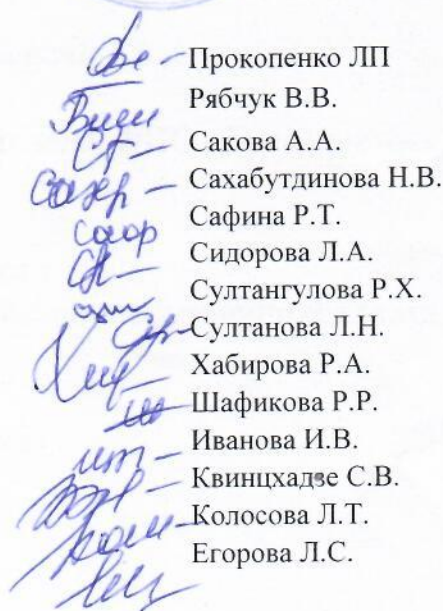 Прокопенко ЛП
Рябчук В.В.
Сакова А.А.
Сахабутдинова Н.В.
Сафина Р.Т.
Сидорова Л.А.
Султангулова Р.Х.
Султанова Л.Н.
Хабирова Р.А.
Шафикова Р.Р.
Иванова И.В.
Квинцхадзе С.В.
Колосова Л.Т.
Егорова Л.С.